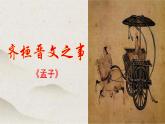 齐桓晋文之事
《孟子》